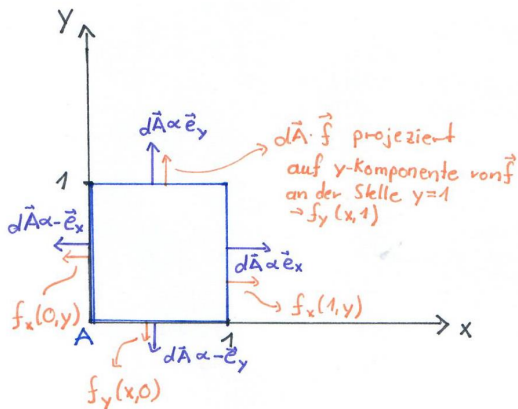 y
dA⃗ ∝ e⃗_y
dA⃗ · f⃗ projeziert
auf y-Komponente von f⃗
an der Stelle y=1
→ f_y (x,1)
1
dA⃗ ∝ -e⃗_x
dA⃗ ∝ e⃗_x
f_x(0,y)
f_x(1,y)
A
1
x
dA⃗ ∝ -e⃗_y
f_y(x,0)